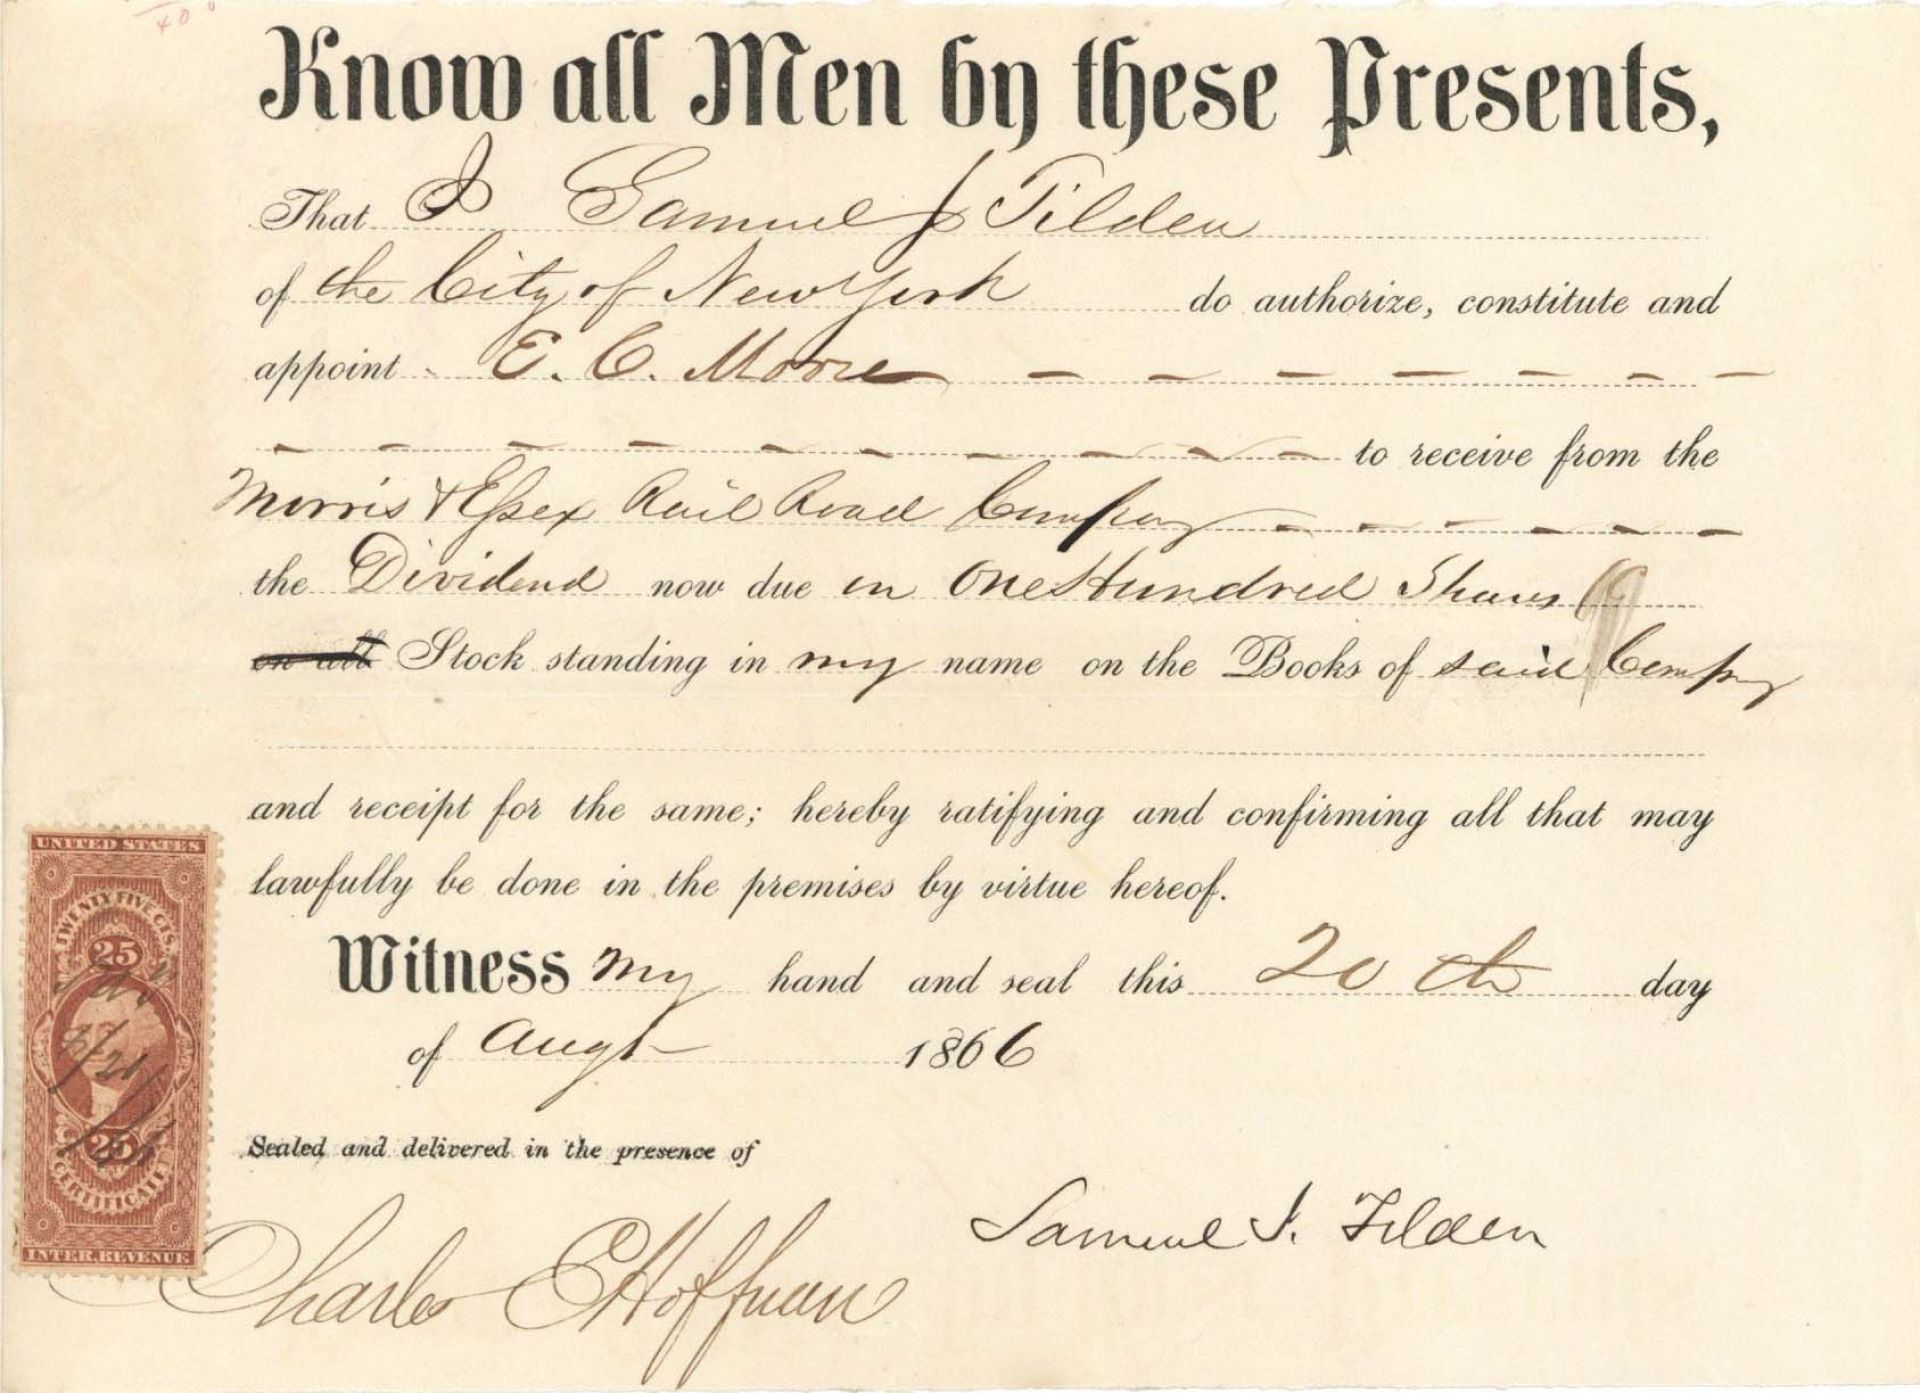 Know all Men by these Presents,
That I Samuel J Tilden
of the City of New York do authorize, constitute and
appoint E. C. Moore
to receive from the
Morris & Essex Rail Road Company
the Dividend now due on One Hundred Shares
on all Stock standing in my name on the Books of said Company
and receipt for the same; hereby ratifying and confirming all that may
lawfully be done in the premises by virtue hereof.
Witness my hand and seal this 20th day
of Augt 1866
Sealed and delivered in the presence of
Samuel J. Tilden
Charles E Hoffman
UNITED STATES
TWENTY FIVE CTS.
25
25
CERTIFICATE
INTER. REVENUE